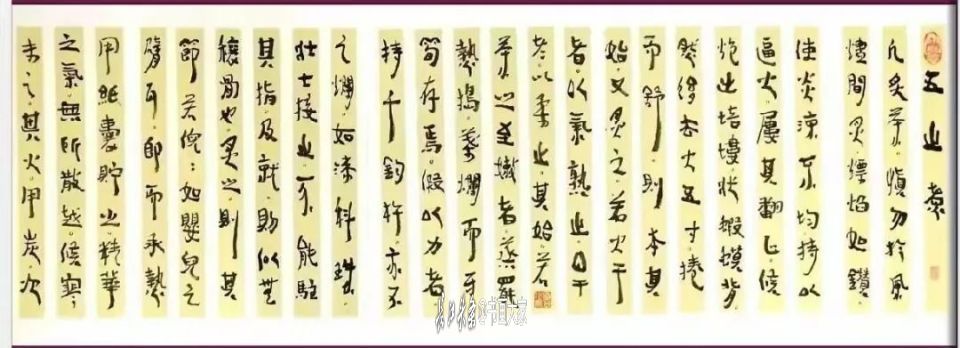 五之煮
凡炙茶慎勿於風
燼間炙熛焰如鑽
使炎涼不均持以
逼火屢其翻正候
炮出培塿狀蝦蟆背
然後去火五寸捲
而舒則本其
始又炙之若火干
者以氣熟止日干
者以柔止其始若
茶之至嫩者蒸罷
熱搗葉爛而牙
筍存焉假以力者
持千鈞杵亦不
之爛如漆科珠
壯士接之不能駐
其指及就則似無
穰骨也炙之則其
節若倪々如嬰兒之
臂耳即而承熱
用紙囊貯之精華
之氣無所散越候寒
末之其火用炭次